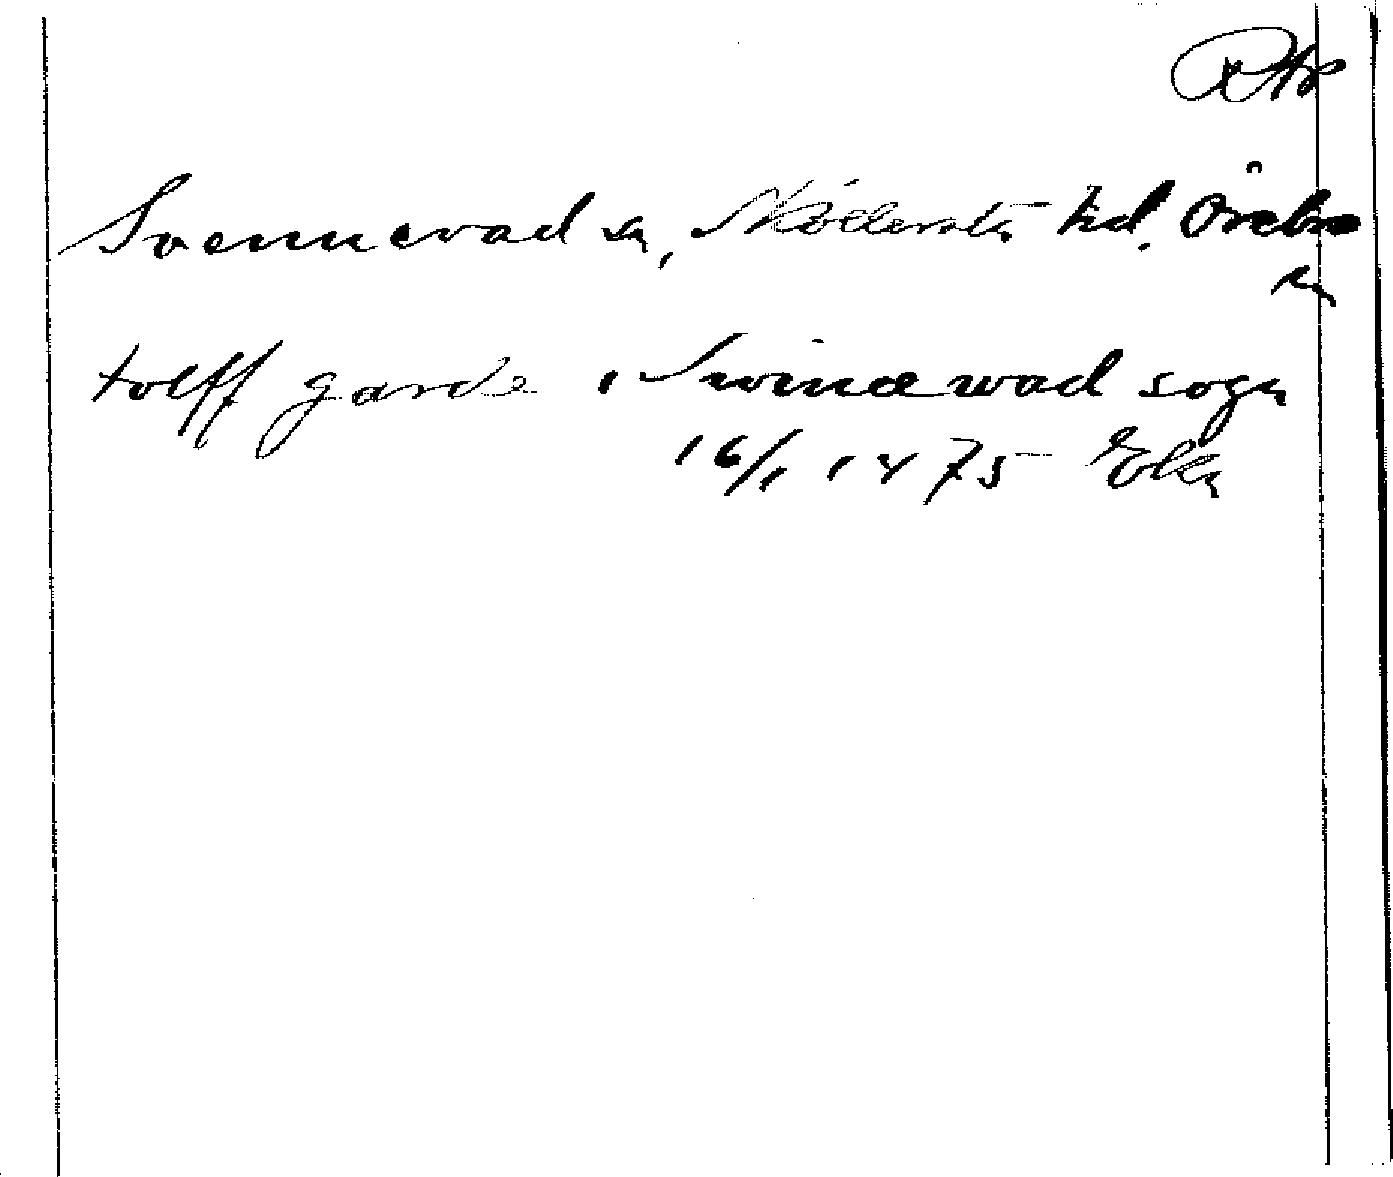 Svennevad sn, Sköllersta hd. Örebro
ln
tolff garde i Swinæwad sogn
16/1 1475 Ekn